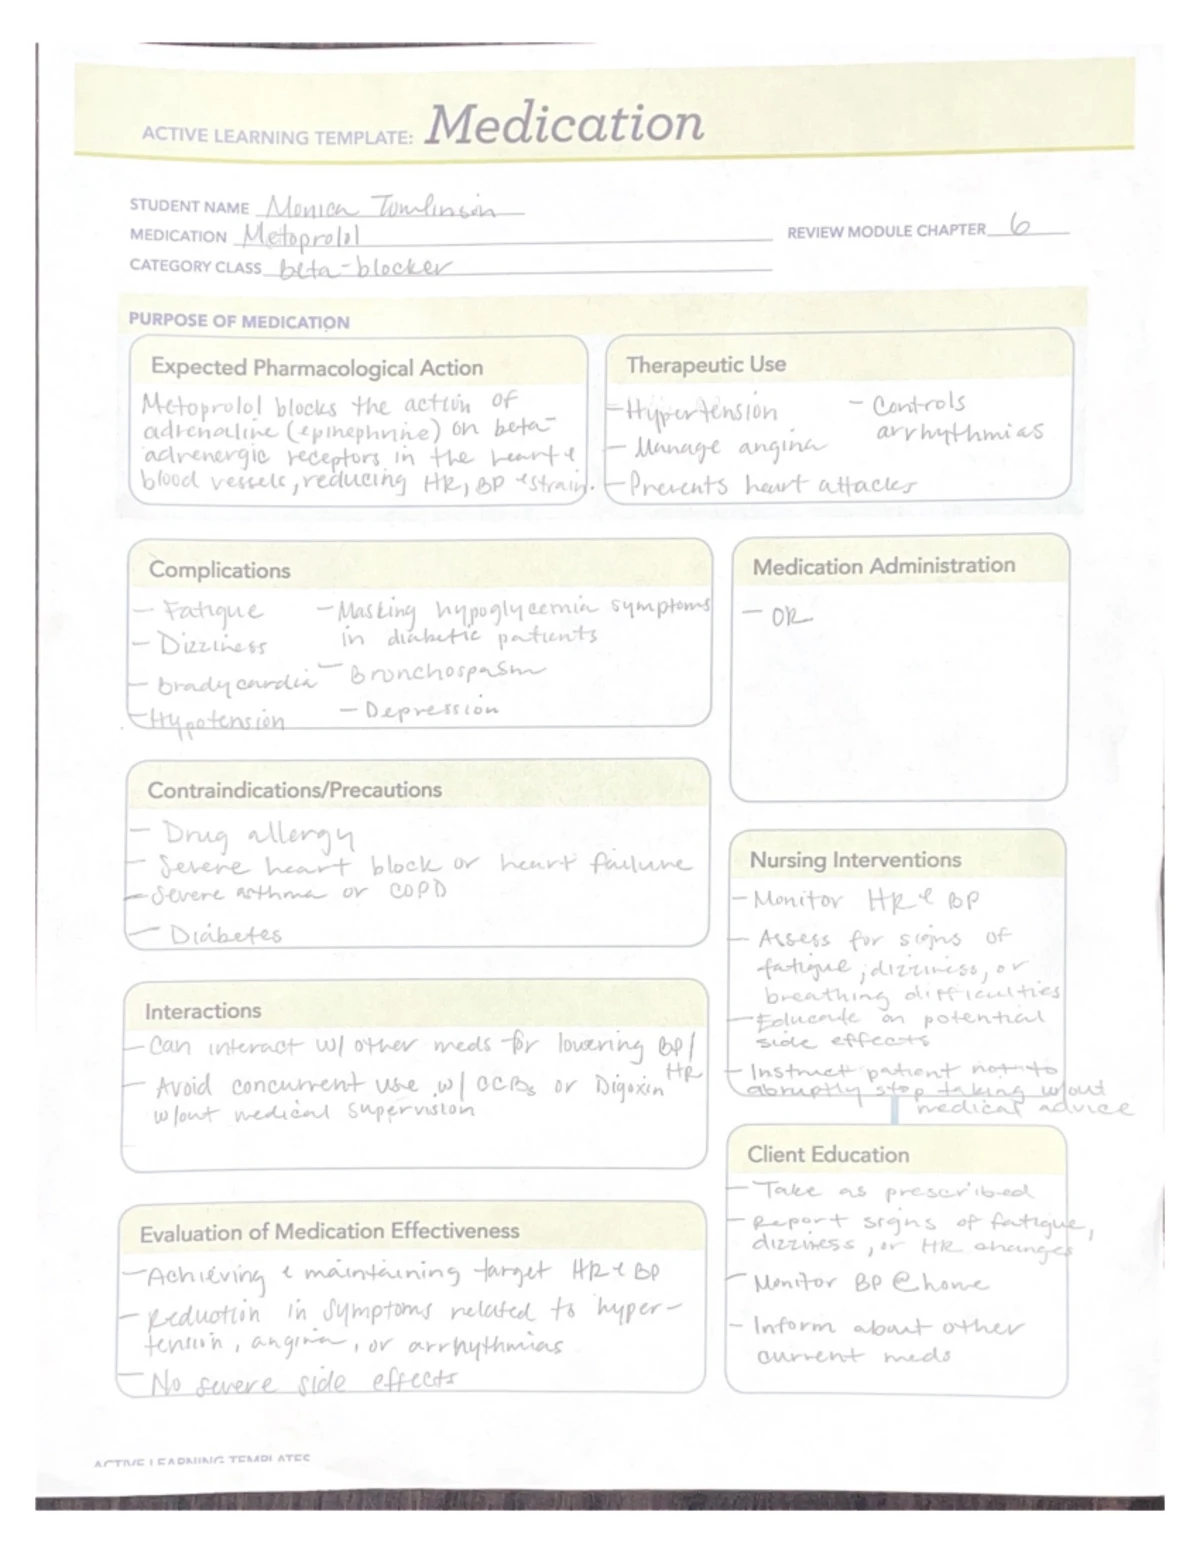 ACTIVE LEARNING TEMPLATE: Medication
STUDENT NAME Monica Tomlinson
MEDICATION Metoprolol
REVIEW MODULE CHAPTER 6
CATEGORY CLASS beta-blocker
PURPOSE OF MEDICATION
Expected Pharmacological Action
Metoprolol blocks the action of
adrenaline (epinephrine) on beta-
adrenergic receptors in the heart &
blood vessels, reducing HR, BP & strain.
Therapeutic Use
- Hypertension
- Manage angina
- Prevents heart attacks
- Controls
arrhythmias
Complications
- Fatigue
- Dizziness
- bradycardia
- Hypotension
- Masking hypoglycemia symptoms
in diabetic patients
- Bronchospasm
- Depression
Medication Administration
- OR
Contraindications/Precautions
- Drug allergy
- Severe heart block or heart failure
- Severe asthma or COPD
- Diabetes
Nursing Interventions
- Monitor HR & BP
- Assess for signs of
fatigue, dizziness, or
breathing difficulties
- Educate on potential
side effects
- Instruct patient not to
abruptly stop taking w/out
medical advice
Interactions
- Can interact w/ other meds for lowering BP/
HR
- Avoid concurrent use w/ CCBs or Digoxin
w/out medical supervision
Client Education
- Take as prescribed
- Report signs of fatigue,
dizziness, or HR changes
- Monitor BP @ home
- Inform about other
current meds
Evaluation of Medication Effectiveness
- Achieving & maintaining target HR & BP
- Reduction in symptoms related to hyper-
tension, angina, or arrhythmias
- No severe side effects
ACTIVE LEARNING TEMPLATES